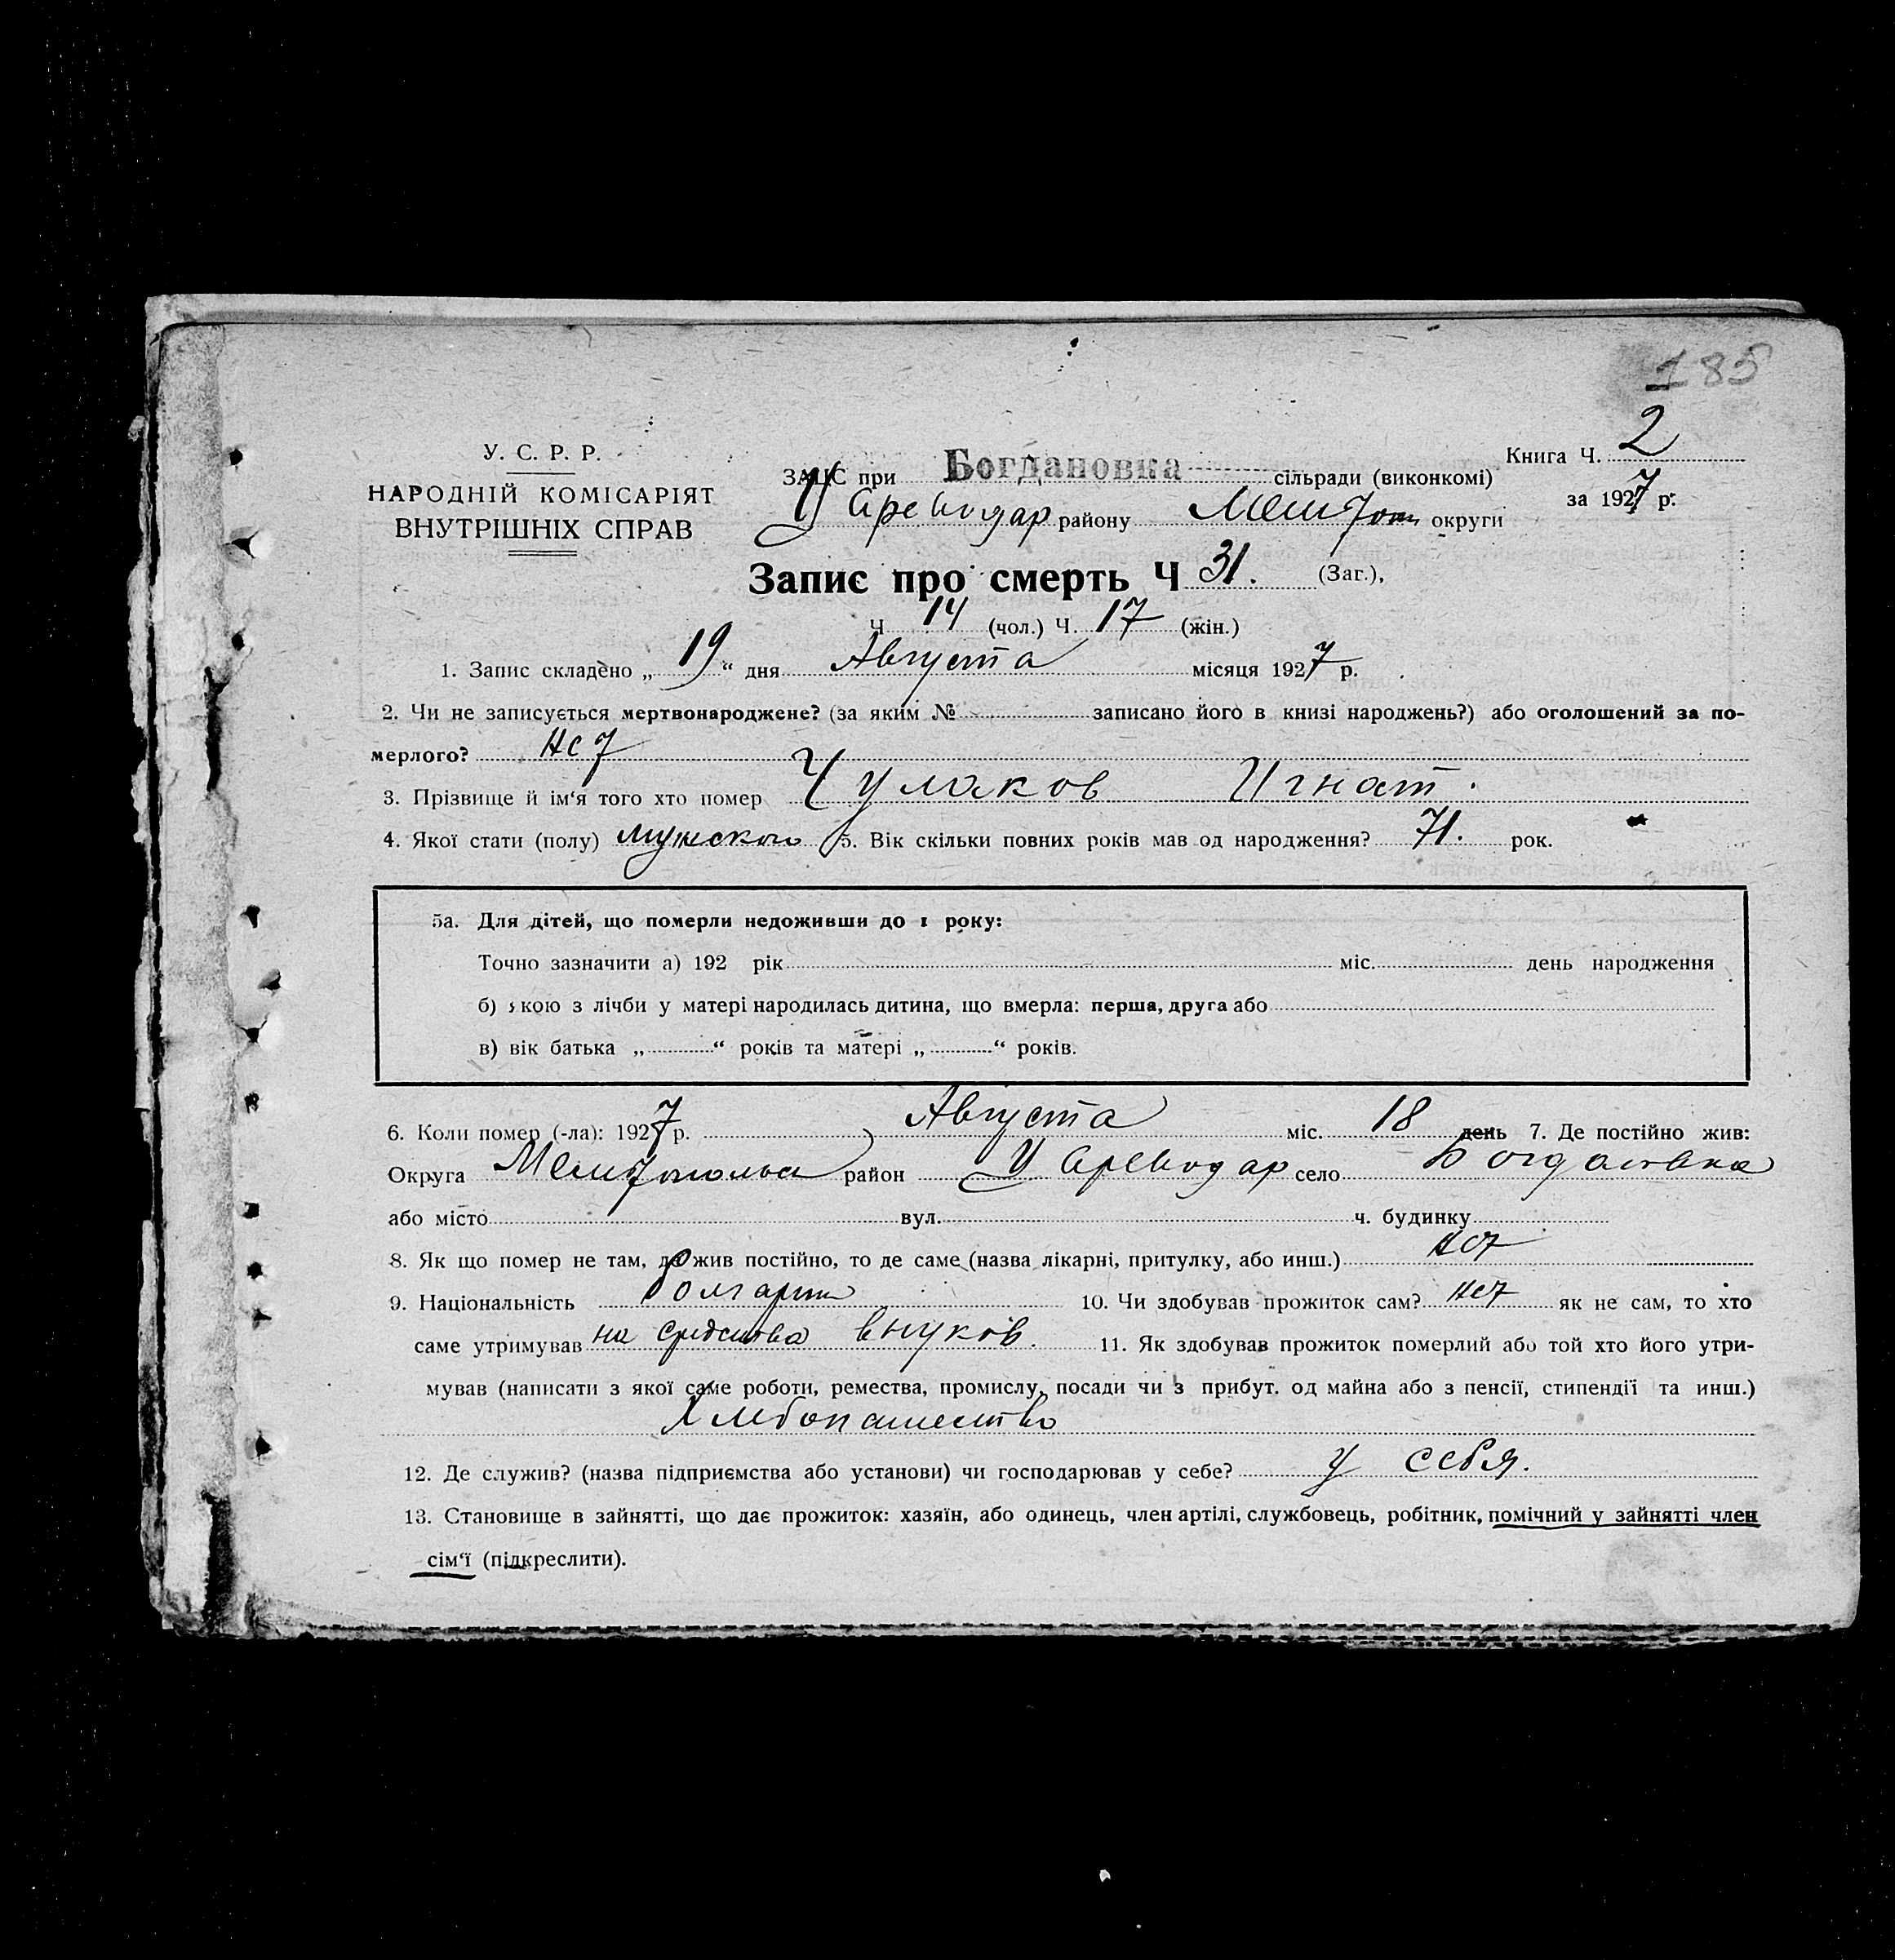 185
У. С. Р. Р.
НАРОДНІЙ КОМІСАРІЯТ
ВНУТРІШНІХ СПРАВ
ЗАЦС при Богдановка сільради (виконкомі)
Цареводар району Мелітоп округи
Книга Ч. 2
за 1927 р.
Запис про смерть Ч 31. (Заг.),
Ч 14 (чол.) Ч. 17 (жін.)
1. Запис складено „ 19 “ дня Августа місяця 1927 р.
2. Чи не записується мертвонароджене? (за яким № записано його в книзі народжень?) або оголошений за по-
мерлого? нет
3. Прізвище й ім‘я того хто помер Чулаков Игнат.
4. Якої стати (полу) мужского 5. Вік скільки повних років мав од народження? 71. рок.
5а. Для дітей, що померли недоживши до 1 року:
Точно зазначити а) 192 рік міс. день народження
б) якою з лічби у матері народилась дитина, що вмерла: перша, друга або
в) вік батька „ “ років та матері „ “ років.
6. Коли помер (-ла): 1927 р. Августа міс. 18 день 7. Де постійно жив:
Округа район Цареводар село Богдановка
або місто вул. ч. будинку
8. Як що помер не там, де жив постійно, то де саме (назва лікарні, притулку, або инш.) нет
9. Національність болгарин 10. Чи здобував прожиток сам? нет як не сам, то хто
саме утримував на средства внуков. 11. Як здобував прожиток померлий або той хто його утри-
мував (написати з якої саме роботи, ремества, промислу, посади чи з прибут. од майна або з пенсії, стипендії та инш.)
Хлебопашество
12. Де служив? (назва підприємства або установи) чи господарював у себе? у себя.
13. Становище в зайнятті, що дає прожиток: хазяїн, або одинець, член артілі, службовець, робітник, помічний у зайнятті член
сім‘ї (підкреслити).